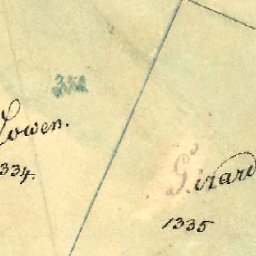 Lowen.
334.
Girard
1335